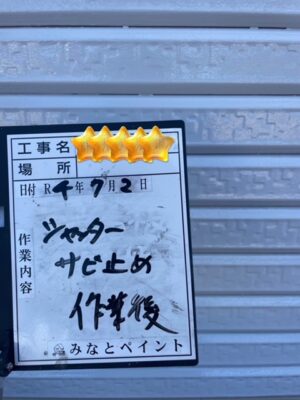 工事名
場所
日付 R4年7月2日
作業内容
シャッター
サビ止め
作業後
みなとペイント